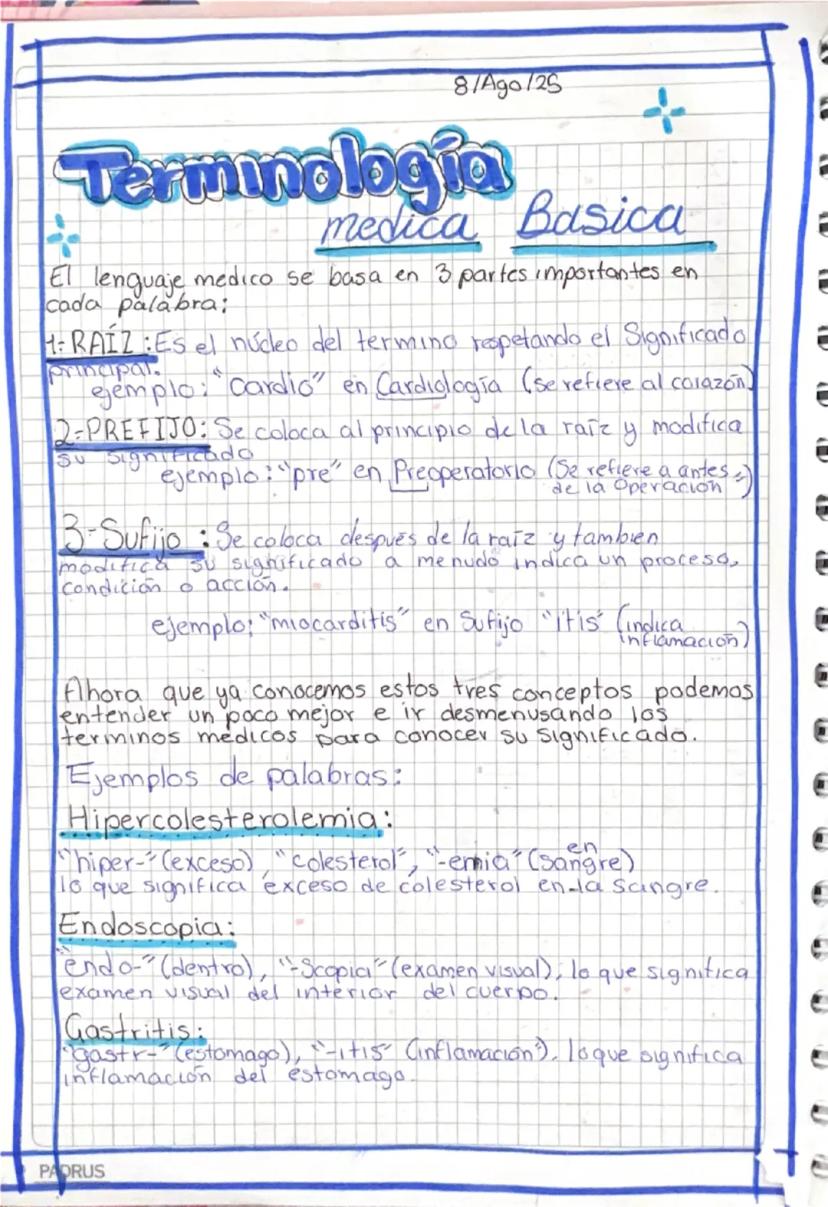 8/Ago/25
Terminología
medica Basica
El lenguaje medico se basa en 3 partes importantes en
cada palabra:
1= RAÍZ : Es el núcleo del termino respetando el Significado
principal.
ejemplo: "cardio" en Cardiología (se refiere al corazón)
2=PREFIJO: Se coloca al principio de la raíz y modifica
su significado
ejemplo: "pre" en Preoperatorio (Se refiere a antes
de la Operación)
3-Sufijo : Se coloca después de la raíz y tambien
modifica su significado a menudo indica un proceso,
condición o acción.
ejemplo: "miocarditis" en Sufijo "itis" (indica
inflamación)
Ahora que ya conocemos estos tres conceptos podemos
entender un poco mejor e ir desmenusando los
terminos médicos para conocer su significado.
Ejemplos de palabras:
Hipercolesterolemia:
"hiper-" (exceso), "colesterol", "-emia" (en sangre)
lo que significa exceso de colesterol en la sangre.
Endoscopia:
"endo-" (dentro), "-Scopia" (examen visual), lo que significa
examen visual del interior del cuerpo.
Gastritis:
"gastr-" (estomago), "-itis" (inflamación). lo que significa
inflamación del estomago.
PADRUS